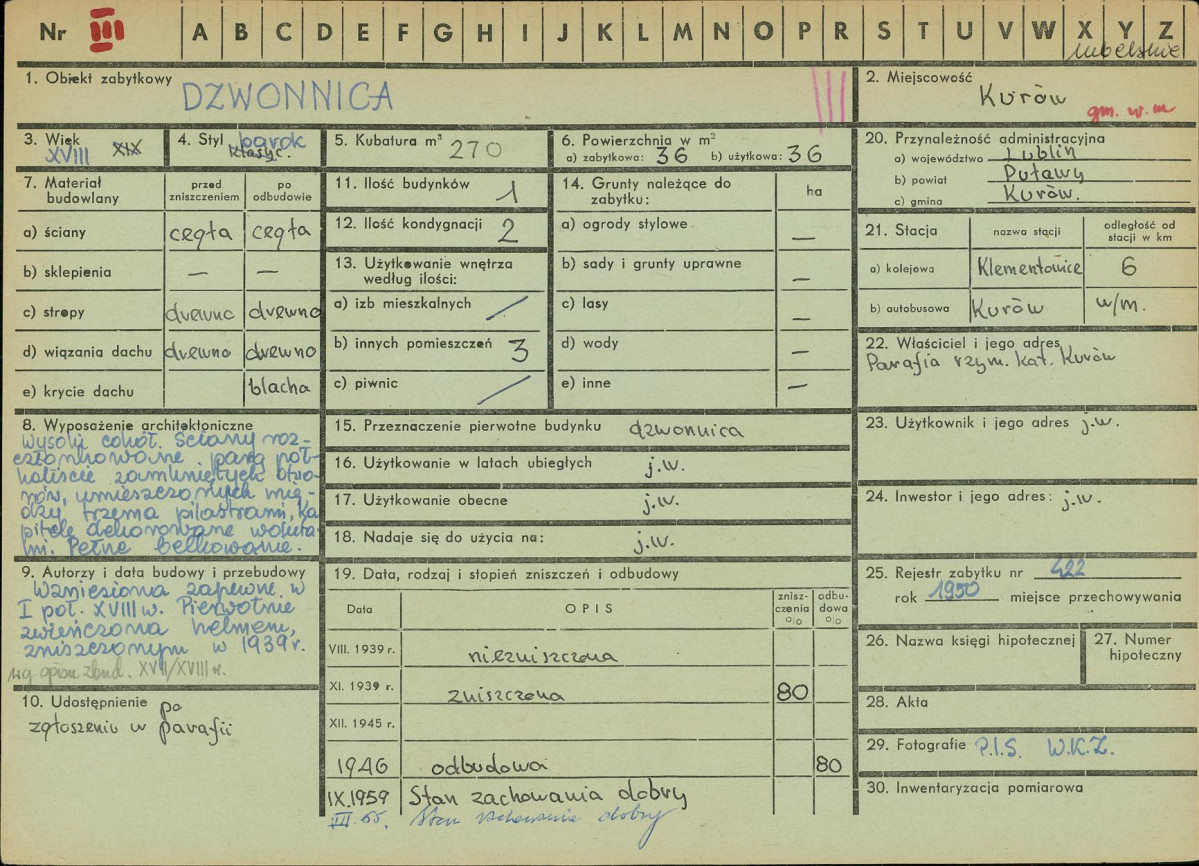 Nr III A B C D E F G H I J K L M N O P R S T U V W X Y Z
lubelskie
1. Obiekt zabytkowy DZWONNICA
2. Miejscowość Kurów
gm. w. m
3. Wiek XVIII XIX
4. Styl barok
klasyc.
5. Kubatura m³ 270
6. Powierzchnia w m²
a) zabytkowa: 36 b) użytkowa: 36
20. Przynależność administracyjna
a) województwo Lublin
b) powiat Puławy
c) gmina Kurów.
7. Materiał budowlany
przed zniszczeniem
po odbudowie
a) ściany cegła cegła
b) sklepienia — —
c) stropy drewno drewno
d) wiązania dachu drewno drewno
e) krycie dachu blacha
11. Ilość budynków 1
12. Ilość kondygnacji 2
13. Użytkowanie wnętrza
według ilości:
a) izb mieszkalnych /
b) innych pomieszczeń 3
c) piwnic /
14. Grunty należące do
zabytku: ha
a) ogrody stylowe —
b) sady i grunty uprawne —
c) lasy —
d) wody —
e) inne —
21. Stacja nazwa stacji odległość od
stacji w km
a) kolejowa Klementowice 6
b) autobusowa Kurów w/m.
22. Właściciel i jego adres
Parafia rzym. kat. Kurów
8. Wyposażenie architektoniczne
Wysoki cokół. Ściany roz-
członkowane parą pół-
koliście zamkniętych otwo-
rów, umieszczonych mię-
dzy trzema pilastrami, ka
pitele dekorowane woluta-
mi. Pełne belkowanie.
15. Przeznaczenie pierwotne budynku dzwonnica
16. Użytkowanie w latach ubiegłych j.w.
17. Użytkowanie obecne j.w.
18. Nadaje się do użycia na: j.w.
23. Użytkownik i jego adres j.w.
24. Inwestor i jego adres: j.w.
9. Autorzy i data budowy i przebudowy
Wzniesiona zapewne w
I poł. XVIII w. Pierwotnie
zwieńczona hełmem,
zniszczonym w 1939 r.
wg opisu zbud. XVII/XVIII w.
10. Udostępnienie po
zgłoszeniu w parafii
19. Data, rodzaj i stopień zniszczeń i odbudowy
Data OPIS znisz-
czenia
%
odbu-
dowa
%
VIII. 1939 r. niezniszczona
XI. 1939 r. zniszczona 80
XII. 1945 r.
1946 odbudowa 80
IX.1959 Stan zachowania dobry
III 65. Stan zachowania dobry
25. Rejestr zabytku nr 422
rok 1950 miejsce przechowywania
26. Nazwa księgi hipotecznej
27. Numer
hipoteczny
28. Akta
29. Fotografie P.I.S. W.K.Z.
30. Inwentaryzacja pomiarowa